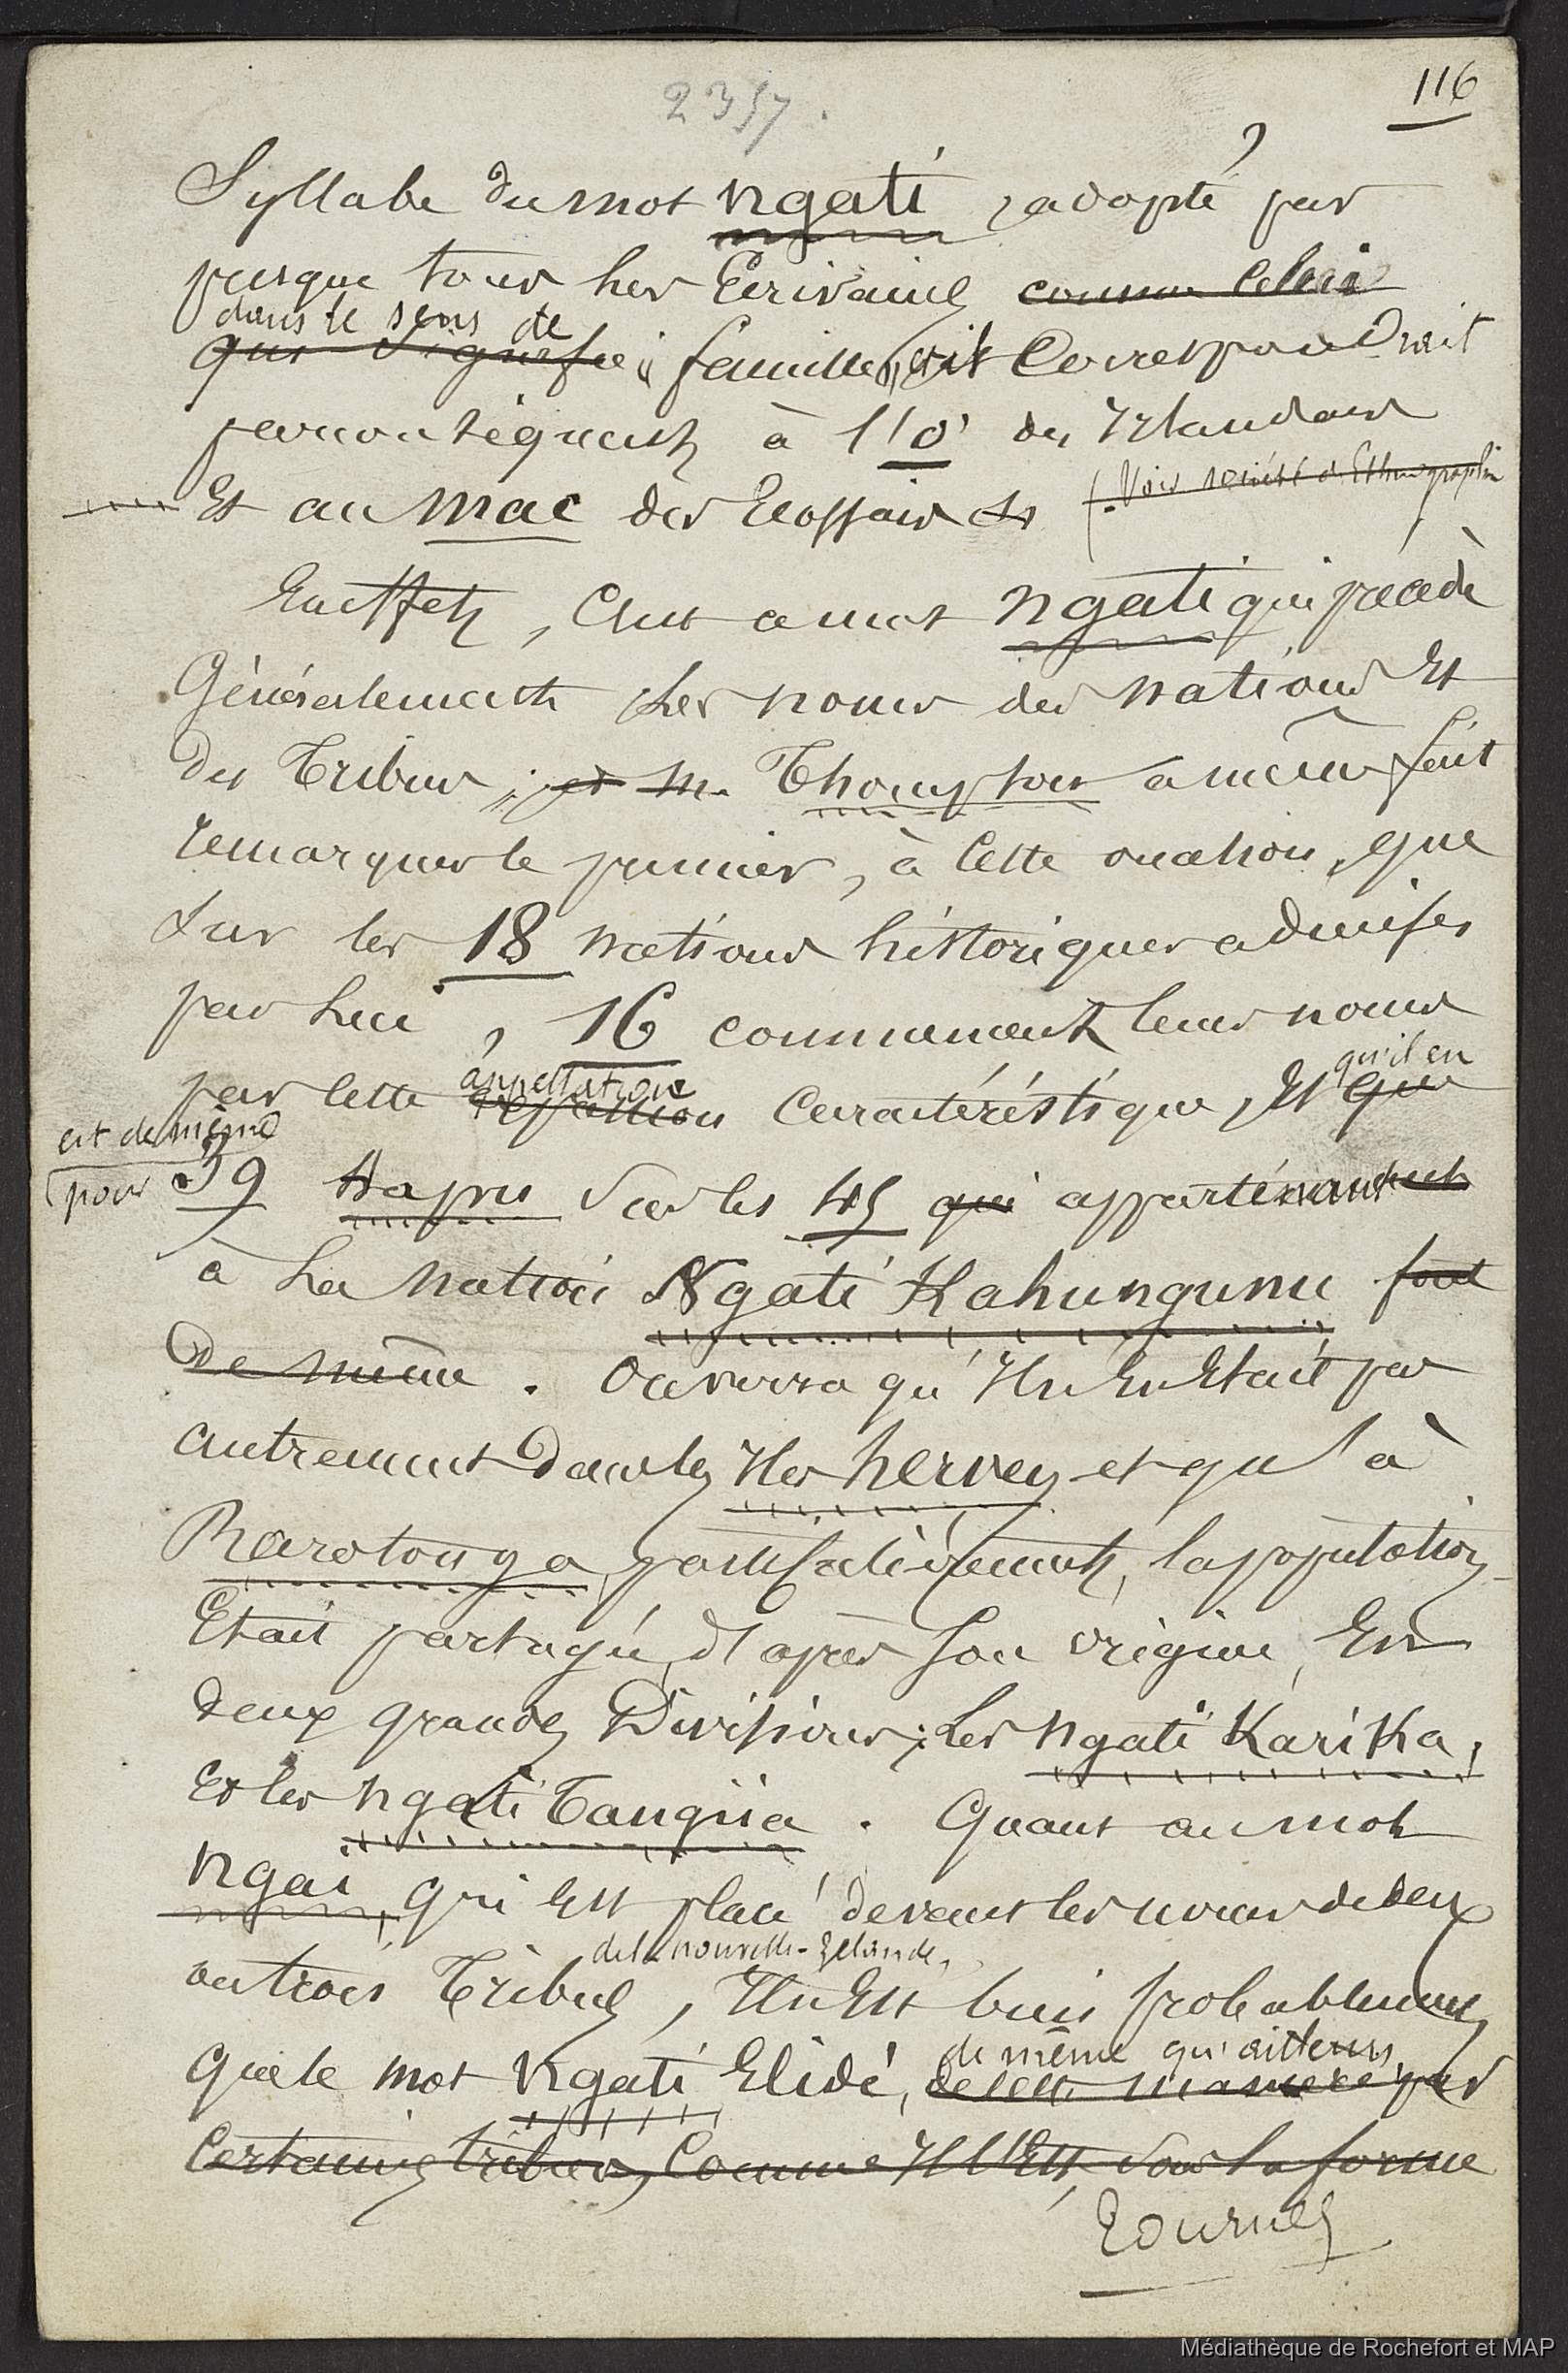 116
2357.
Syllabe du mot ngati, adopté par
presque tous les Ecrivains comme celui
dans le sens de
qui signifie famille, et il correspondrait
par conséquent à l'o' des Irlandais
Et au mac des Ecossais (Voir société d'Ethnographie
En effet, c'est ce mot ngati qui précède
Généralement les noms des nations Et
des Tribus; et M. Thompson a même fait
remarquer le premier, à cette occasion, que
sur les 18 nations historiques admises
par lui, 16 commencent leurs noms
appellation qu'il en
par cette expression caractéristique, Et que
est de même
pour 39 Hapus sur les 45 qui appartenant
à la nation Ngati Kahungunu font
de même. On verra qu'Il n'en Etait pas
autrement dans les Iles hervey et qu'à
Rarotonga particulièrement, la population
Etait partagée, d'après son origine, En
deux grandes Divisions; les ngati Karika,
Et les ngati Tangiia. Quant au mot
ngai, qui Est placé devant les noms de deux
de la nouvelle-Zélande,
ou trois Tribus, Il n'Est bien probablement
de même qu'ailleurs,
que le mot ngati Elidé, de cette manière par
certaines tribus, Comme Il l'Est, sous la forme
Tournez
Médiathèque de Rochefort et MAP